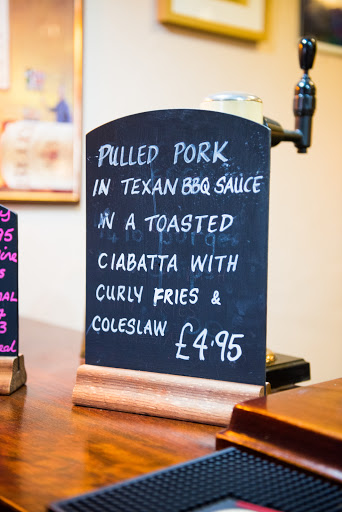 PULLED PORK
IN TEXAN BBQ SAUCE
IN A TOASTED
CIABATTA WITH
CURLY FRIES &
COLESLAW £4.95
95